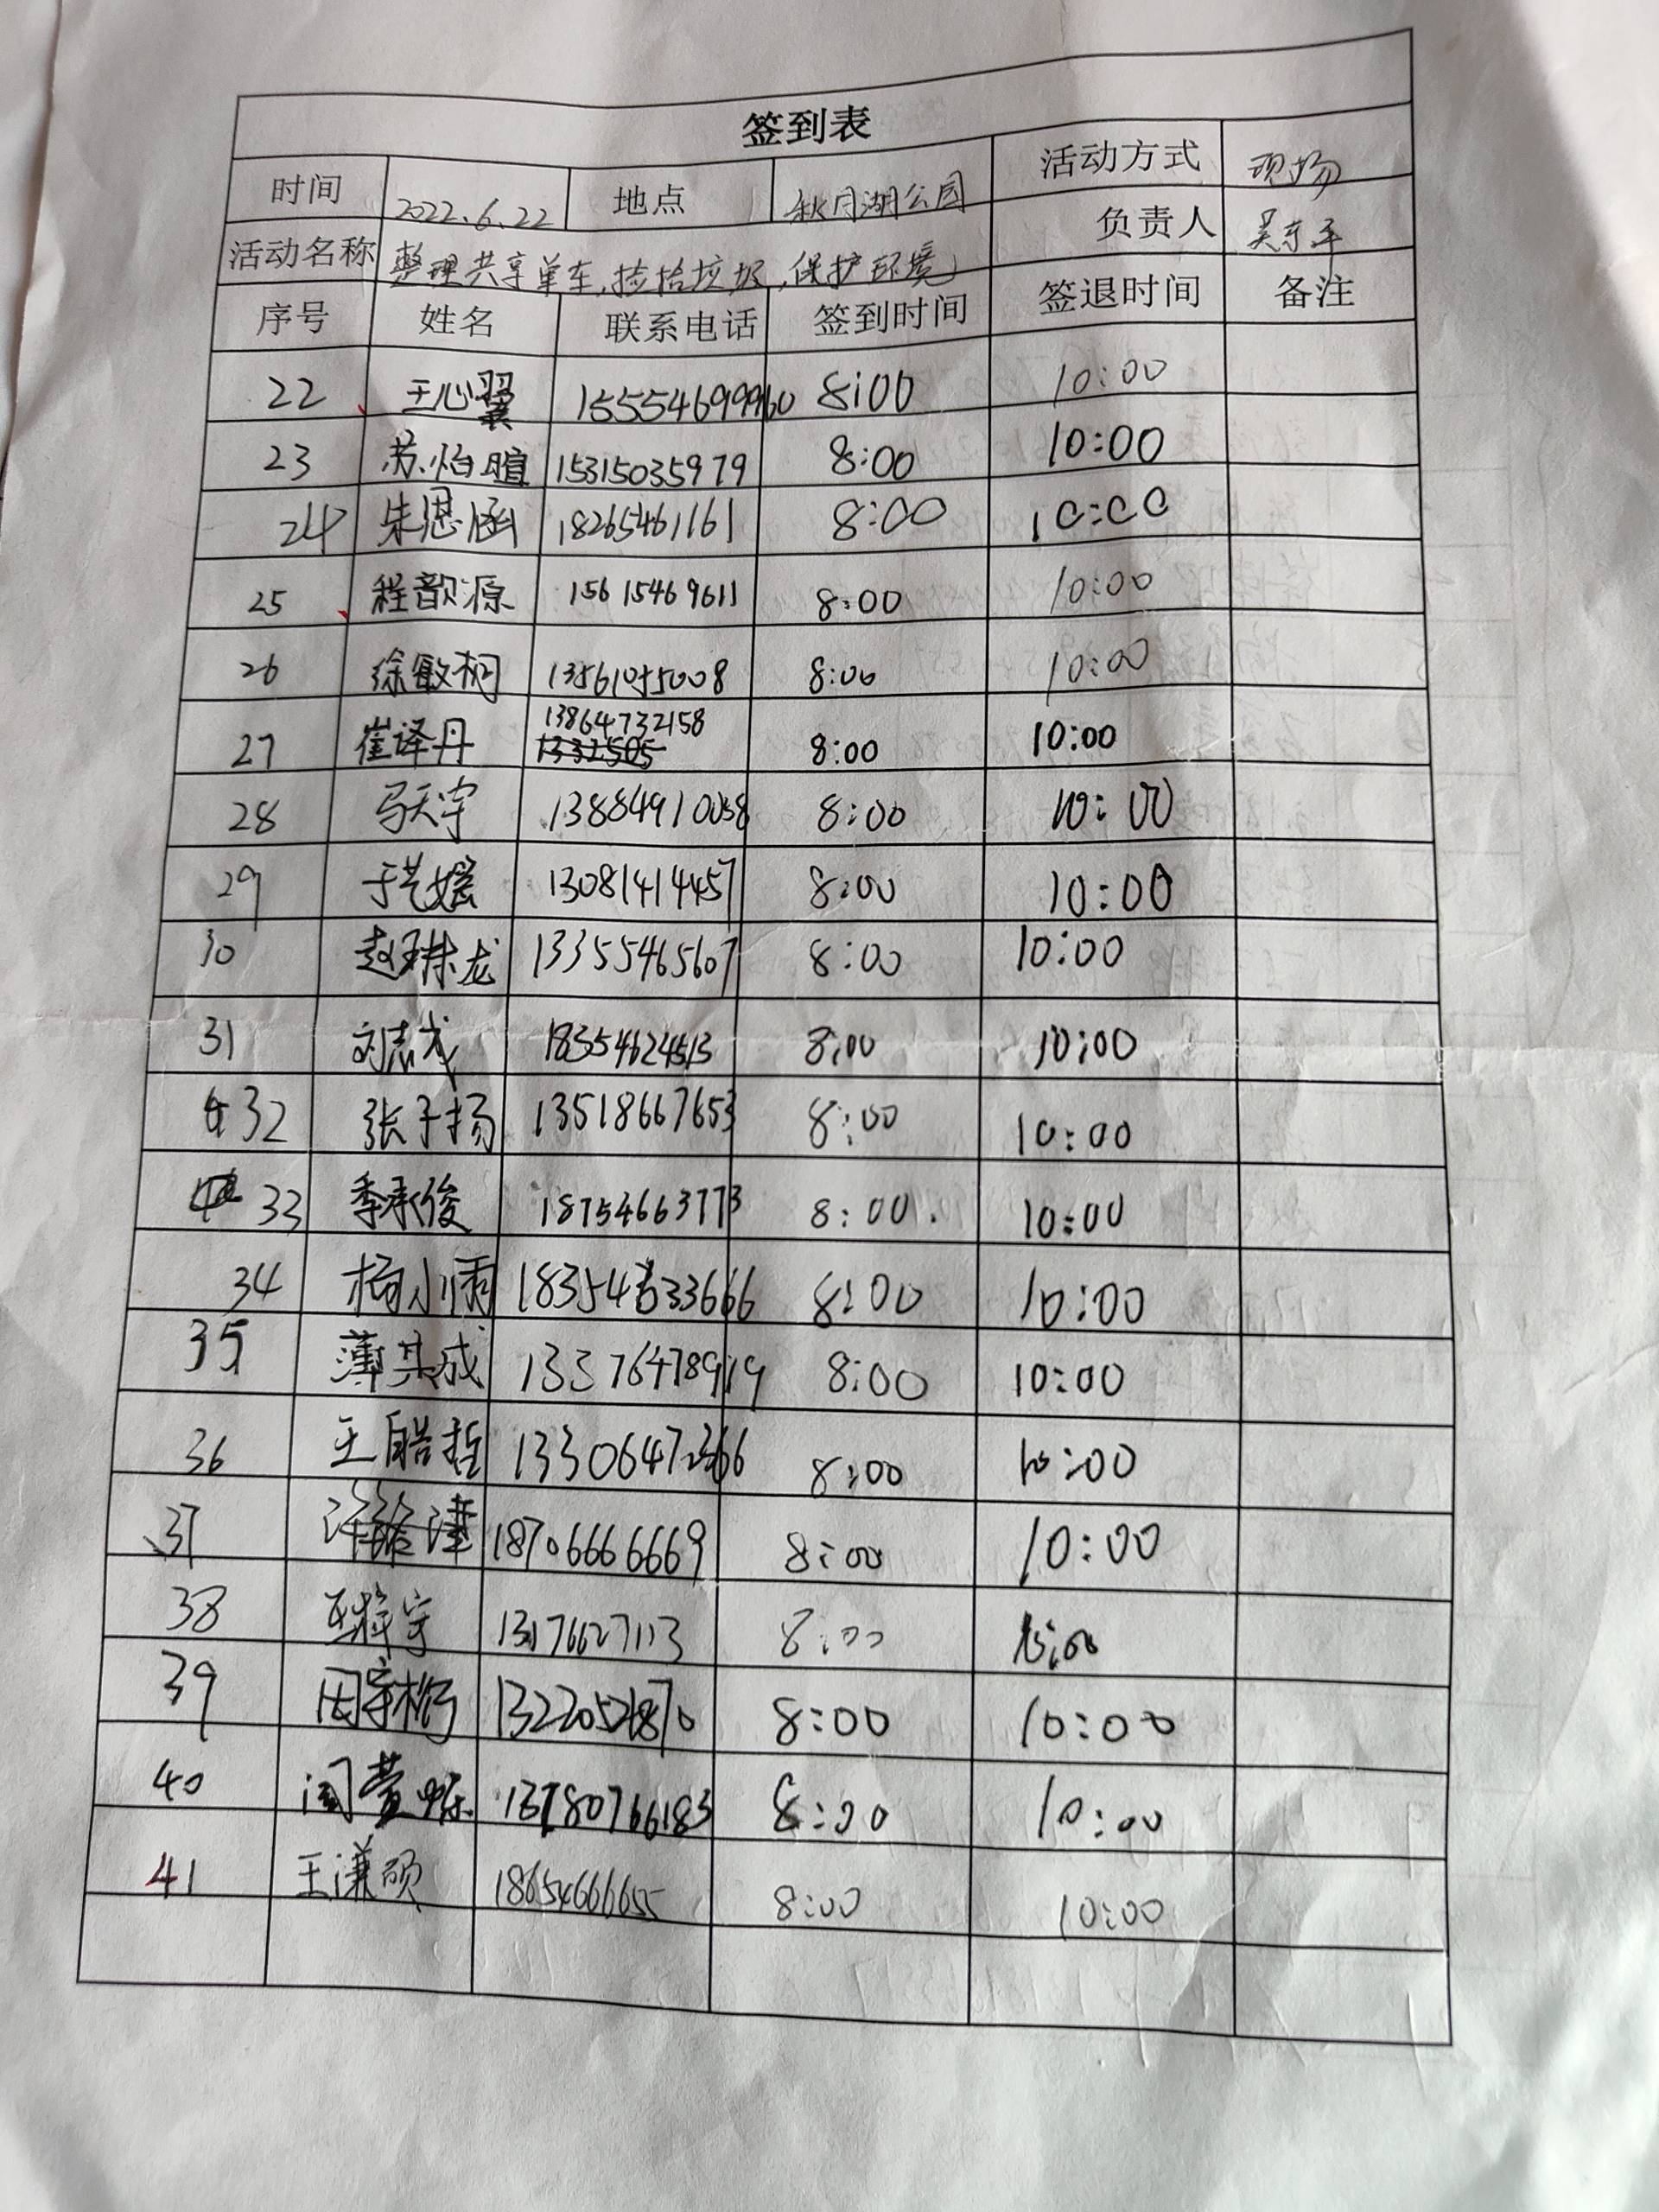 签到表
时间 2022.6.22 地点 秋月湖公园 活动方式 现场
活动名称 整理共享单车,捡拾垃圾,保护环境 负责人 吴东平
序号 姓名 联系电话 签到时间 签退时间 备注
22 王心翼 15554699960 8:00 10:00
23 苏怡暄 15315035979 8:00 10:00
24 朱思涵 18265461161 8:00 10:00
25 程歆源 15615469611 8:00 10:00
26 徐敏桐 13561055008 8:00 10:00
27 崔译丹 13864732158 8:00 10:00
1332505
28 马天宇 13884910058 8:00 10:00
29 于艺媛 13081414457 8:00 10:00
30 赵琳龙 13355465607 8:00 10:00
31 刘志成 18354624513 8:00 10:00
32 张子扬 13518667653 8:00 10:00
33 季承俊 18754663773 8:00 10:00
34 杨小雨 8:00 10:00
35 薄其成 13376478919 8:00 10:00
36 王皓 13306472366 8:00 10:00
37 许 18706666669 8:00 10:00
38 宇 13176627113 8:00
39 田宇 13220521870 8:00 10:00
40 闫 8:00 10:00
41 王谦硕 18654666655 8:00 10:00